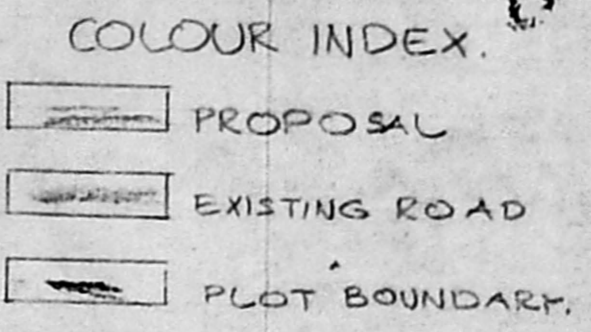 COLOUR INDEX.
PROPOSAL
EXISTING ROAD
PLOT BOUNDARY.